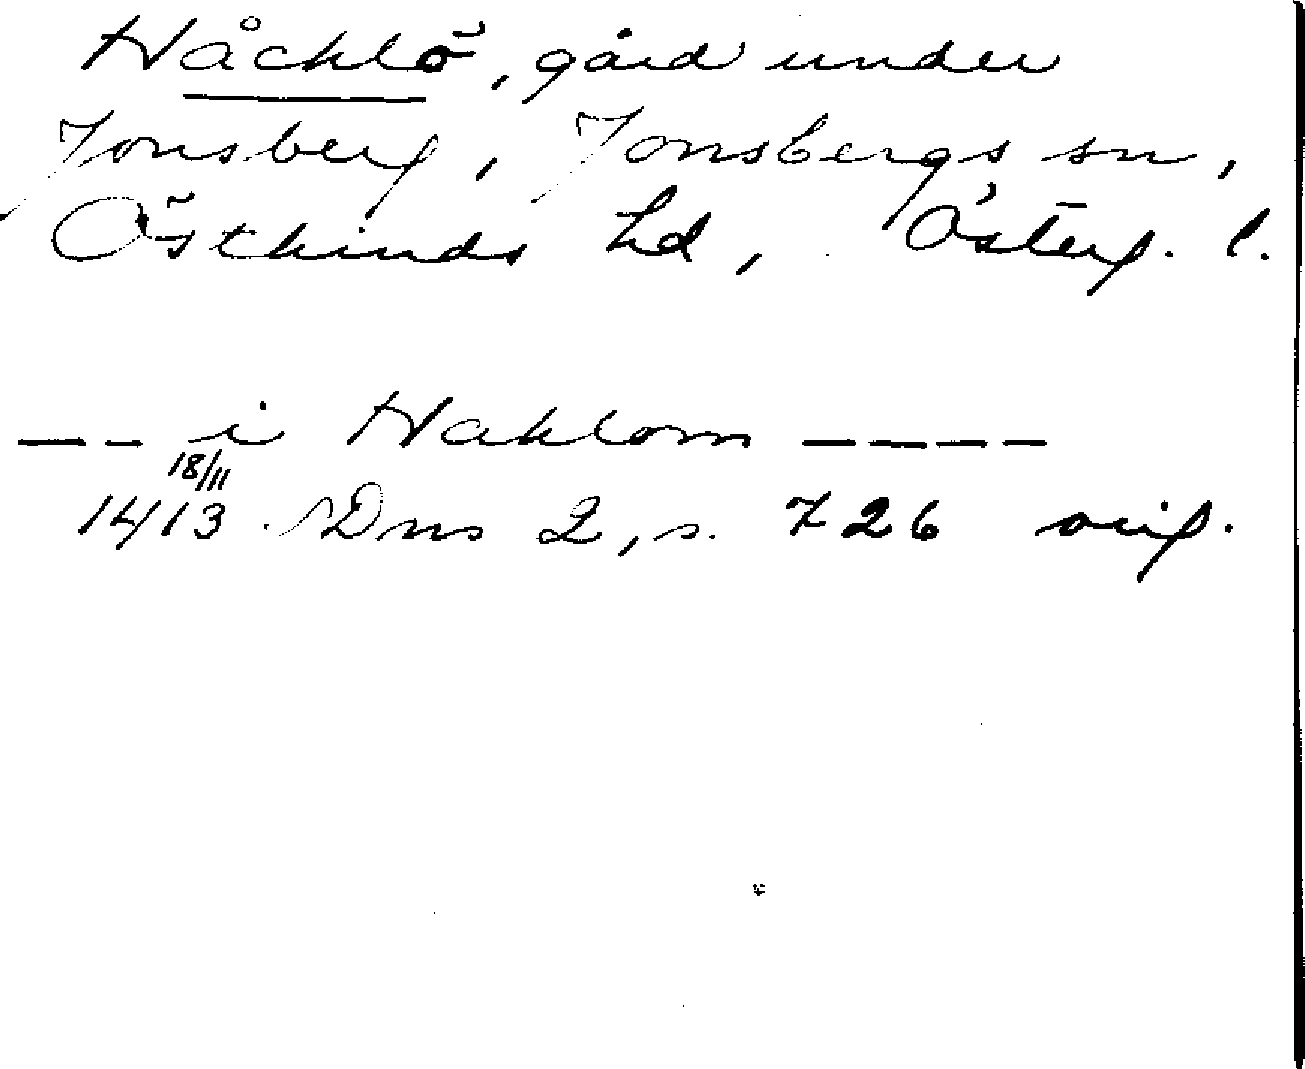 Håcklö, gård under
Jonsberg, Jonsbergs sn,
Östkinds hd, Österg. l.
-- i Haklom ----
18/11
1413 SDns 2, s. 726 orig.